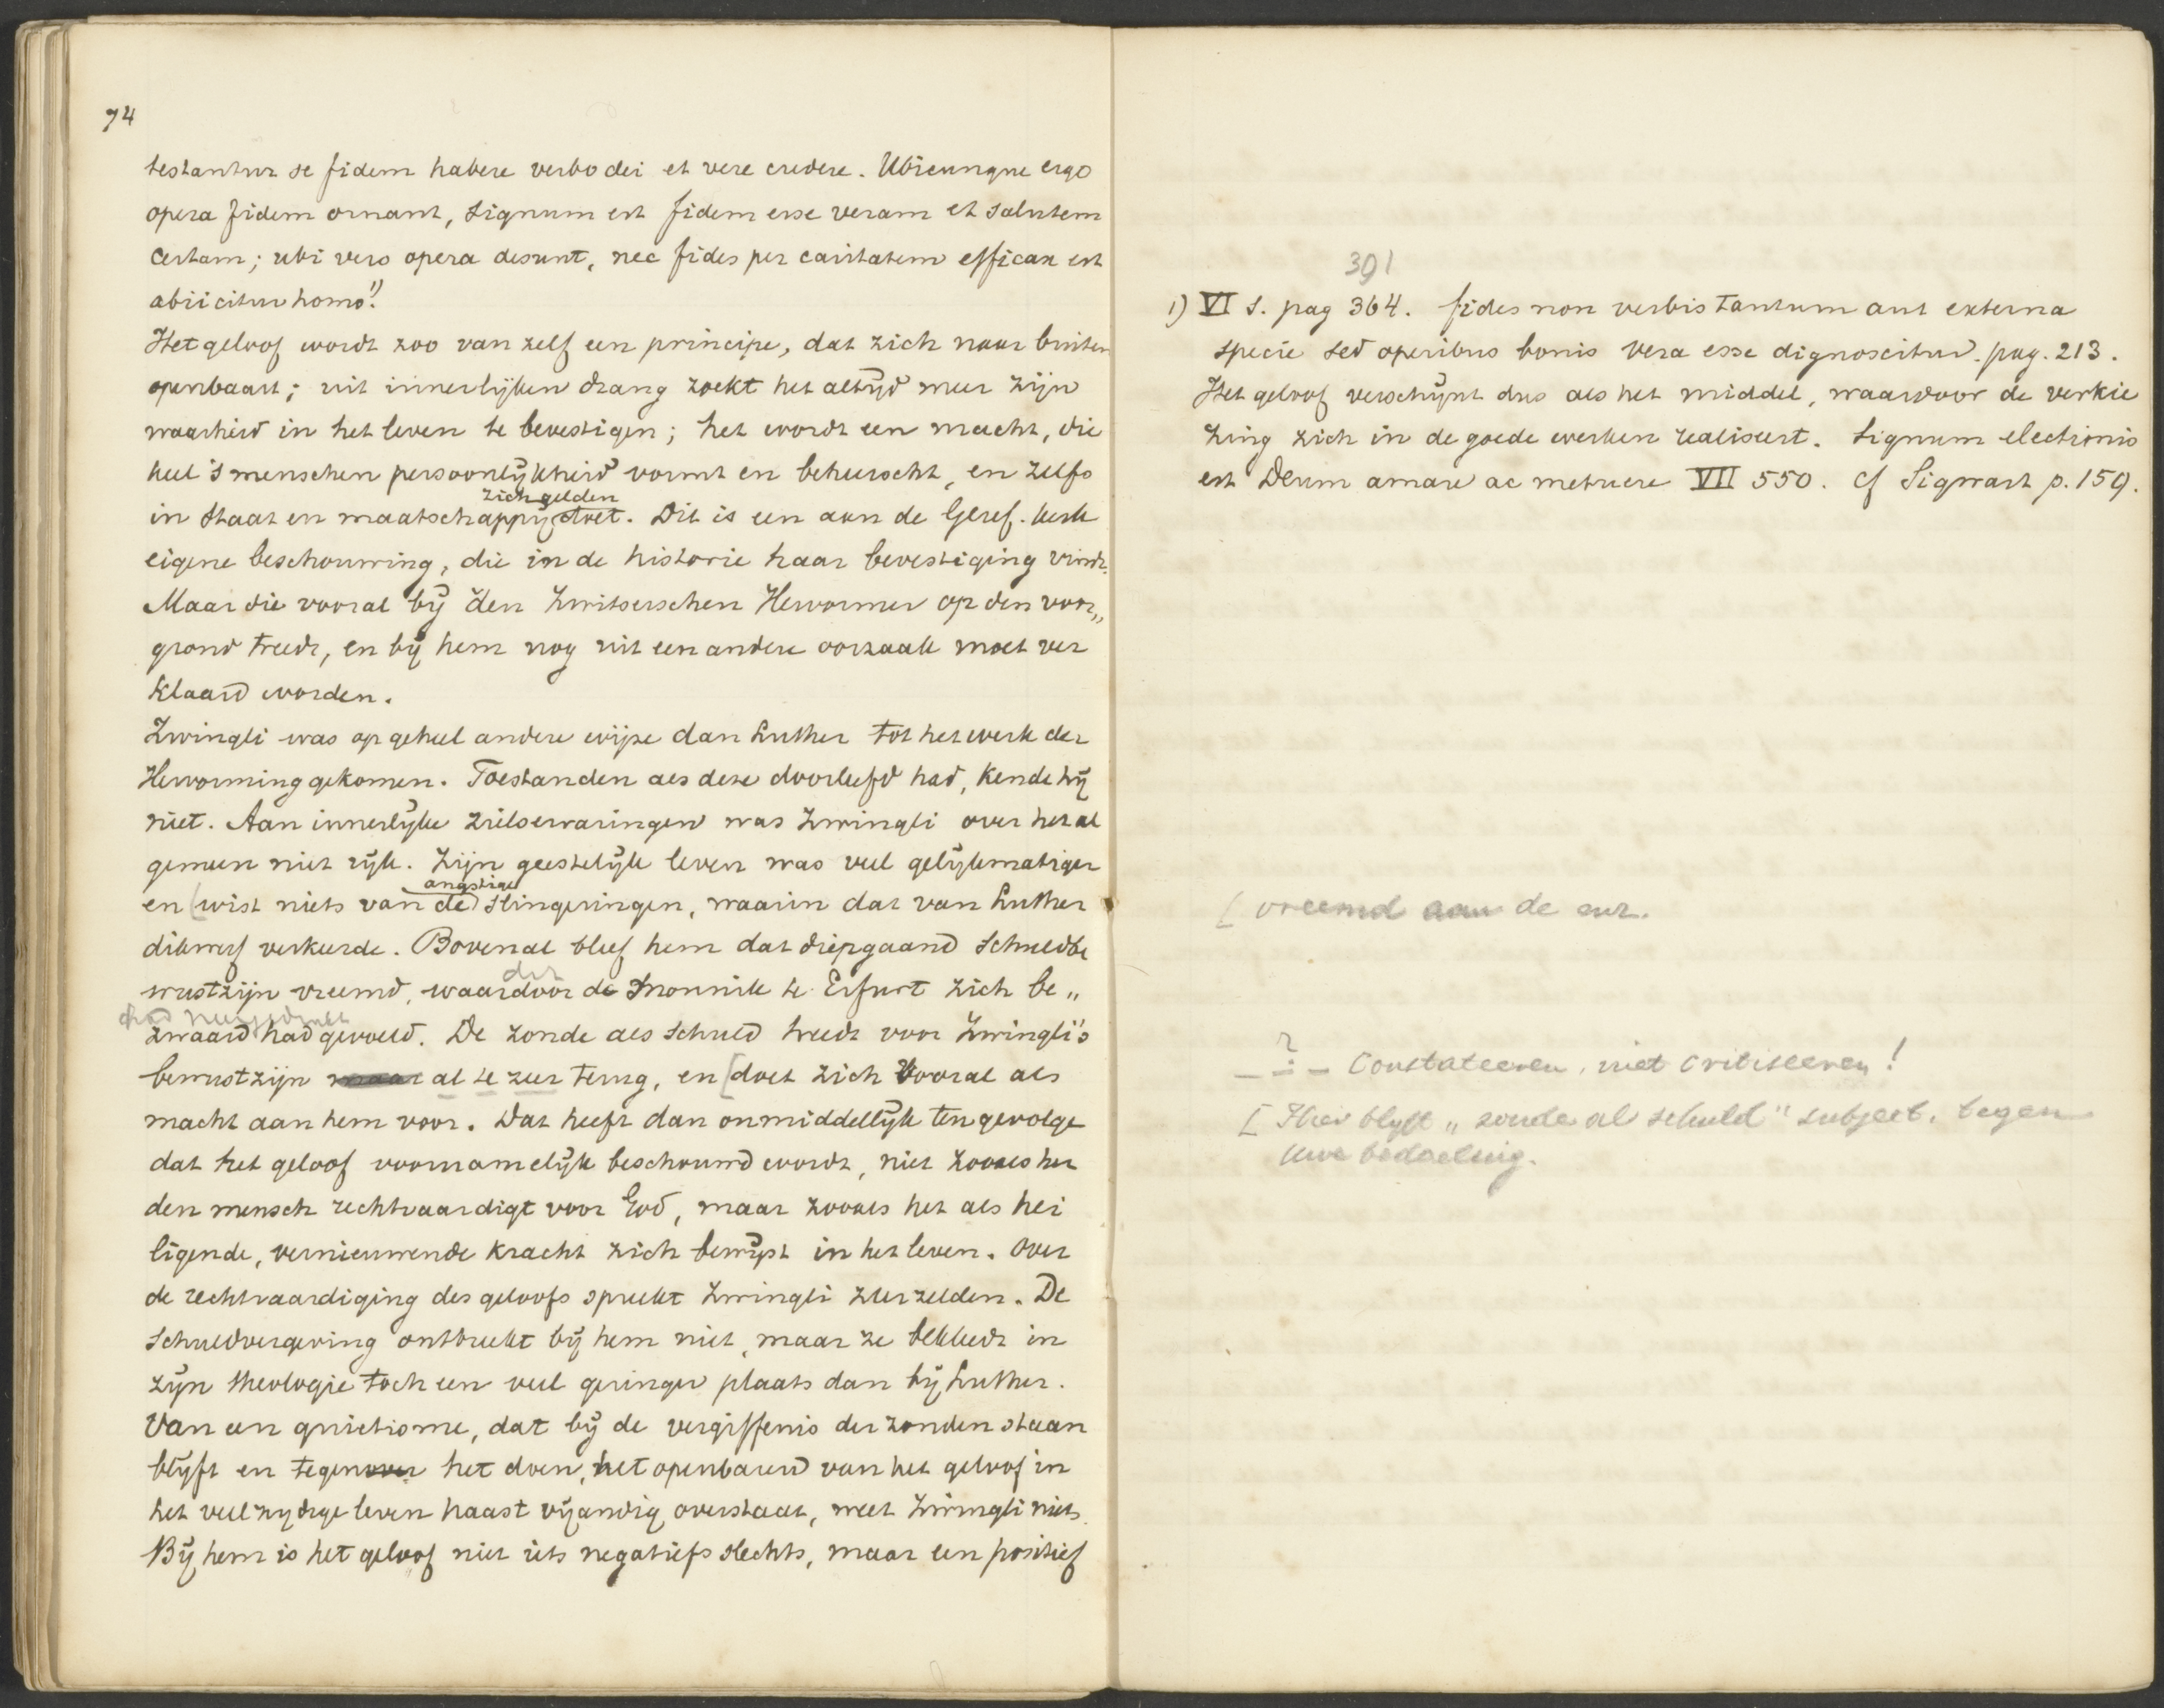 74
testantur se fidem habere verbo dei et vere credere. Ubicunque ergo
opera fidem ornant, signum est fidem esse veram et salutem
certam; ubi vero opera desunt, nec fides per caritatem efficax est
abiicitur homo" 1).
Het geloof wordt zoo van zelf een principe, dat zich naar buiten
openbaart; uit innerlijken drang zoekt het altijd meer zijn
waarheid in het leven te bevestigen; het wordt een macht, die
heel 's menschen persoonlijkheid vormt en beheerscht, en zelfs
zich gelden
in Staat en maatschappij doet. Dit is een aan de Geref. kerk
eigene beschouwing, die in de historie haar bevestiging vindt.
Maar die vooral bij den Zwitserschen Hervormer op den voor„
grond treedt, en bij hem nog uit een andere oorzaak moet ver
klaard worden.
Zwingli was op geheel andere wijze dan Luther tot het werk der
Hervorming gekomen. Toestanden als deze doorleefd had, kende hij
niet. Aan innerlijke zielservaringen was Zwingli over het al
gemeen niet rijk. Zijn geestelijk leven was veel gelijkmatiger
angstige
en [wist niets van de slingeringen, waarin dat van Luther
dikwerf verkeerde. Bovenal bleef hem dat diepgaand Schuldbe
der
wustzijn vreemd, waardoor de monnik te Erfurt zich be„
zwaard had gevoeld. De zonde als schuld treedt voor Zwingli's
bewustzijn maar al te zeer terug, en [doet zich vooral als
macht aan hem voor. Dat heeft dan onmiddellijk ten gevolge
dat het geloof voornamelijk beschouwd wordt, niet zooals het
den mensch rechtvaardigt voor God, maar zooals het als hei
ligende, vernieuwende kracht zich bewijst in het leven. Over
de rechtvaardiging des geloofs spreekt Zwingli zeer zelden. De
Schuldvergeving ontbreekt bij hem niet, maar ze bekleedt in
zijn theologie toch een veel geringer plaats dan bij Luther.
Van een quietisme, dat bij de vergiffenis der zonden staan
blijft en tegenover het doen, het openbaren van het geloof in
het veelzijdige leven haast vijandig overstaat, weet Zwingli niets.
Bij hem is het geloof niet iets negatiefs slechts, maar een positief
391
1) VI S. pag 364. fides non verbis tantum aut externa
specie sed operibus bonis vera esse dignoscitur. pag. 213.
Het geloof verschijnt dus als het middel, waardoor de verkie
zing zich in de goede werken realiseert. Signum electionis
est Deum amare ac metuere VII 550. cf Sigwart p. 159.
[ vreemd aan de enz.
? Constateeren, niet critiseeren!
[ Hier blijft „zonde als schuld" subject, tegen
uwe bedoeling.